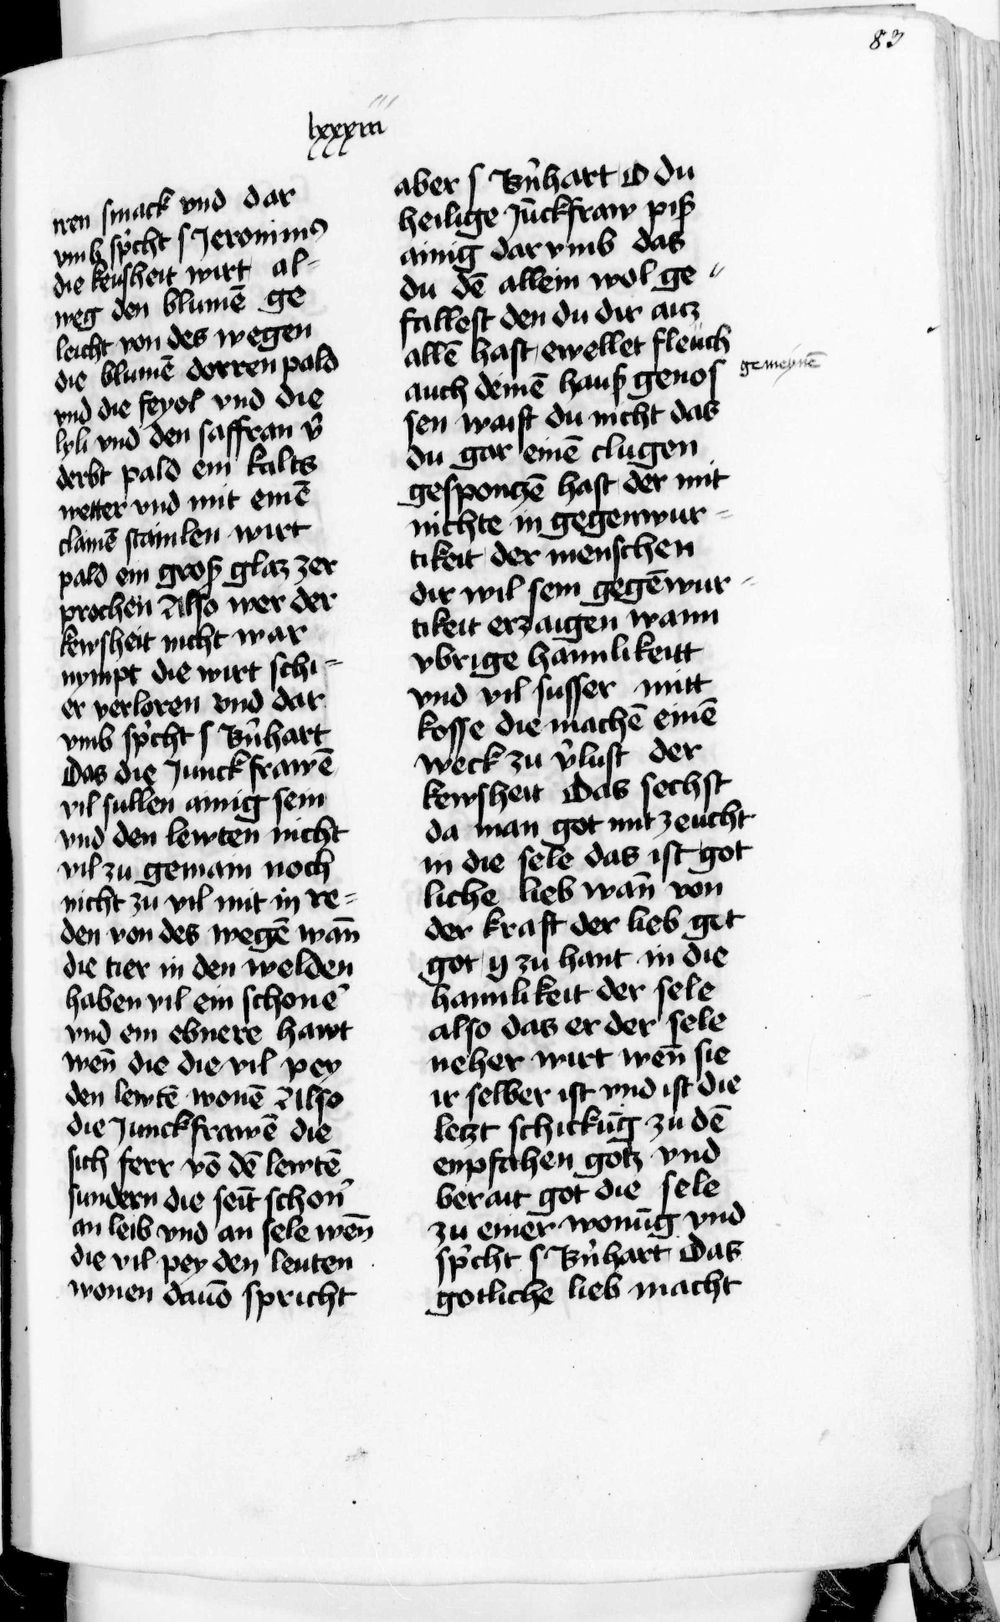 83
lxxxiii
iren smack vnd dar
vmb sp̉cht s Jeronimus
die keusheit wirt al-
weg den blumē ge
leicht von des wegen
die blumē dorren pald
vnd die feyol vnd die
lyli vnd den saffran v̉
derbt pald ein kalts
wetter vnd mit einē
clainē stainlen wirt
pald ein groß glaz zer
prochen Also wer der
kewsheit nicht war
nympt die wirt schi-
er verloren vnd dar
vmb sp̉cht s Bn̉hart
Das die Junckfrawē
vil sullen ainig sein
vnd den lewten nicht
vil zu gemain noch
nicht zu vil mit in re-
den von des wegē wan̄
die tier in den welden
haben vil ein schone᾽
vnd ein ebnere hawt
wen̄ die die vil pey
den lewtē wonē Also
die Junckfrawē die
sich ferr vō dē lewtē
sundern die seīt schon᾽
an leib vnd an sele wen̄
die vil pey den leuten
wonen dauō spricht
aber s Bn̉hart O du
heilige Jūckfraw piß
ainig dar vmb das
du dē allein wol ge-
fallest den du dir auz
allē hast erwellet fleuch
gemeynē
auch deinē hauß genos
sen waist du nicht das
du gar einē clugen
gesponczē hast der mit
nichte in gegenwur-
tikeit der menschen
dir wil sein gegēwur-
tikeit erzaigen wann
vbrige haimlikeitt
vnd vil susser mitt
kosse die machē einē
weck zu v̉lust der
kewsheit Das sechst
da man got mit zeucht
in die sele das ist got
liche lieb wan̄ von
der kraft der lieb get
got y zu hant in die
haimlikeit der sele
also das er der sele
neher wirt wen̄ sie
ir selber ist vnd ist die
letzt schickūg zu dē
enpfahen gotz vnd
berait got die sele
zu einer wonūg vnd
sp̉cht s Bn̉hart Das
gotliche lieb macht